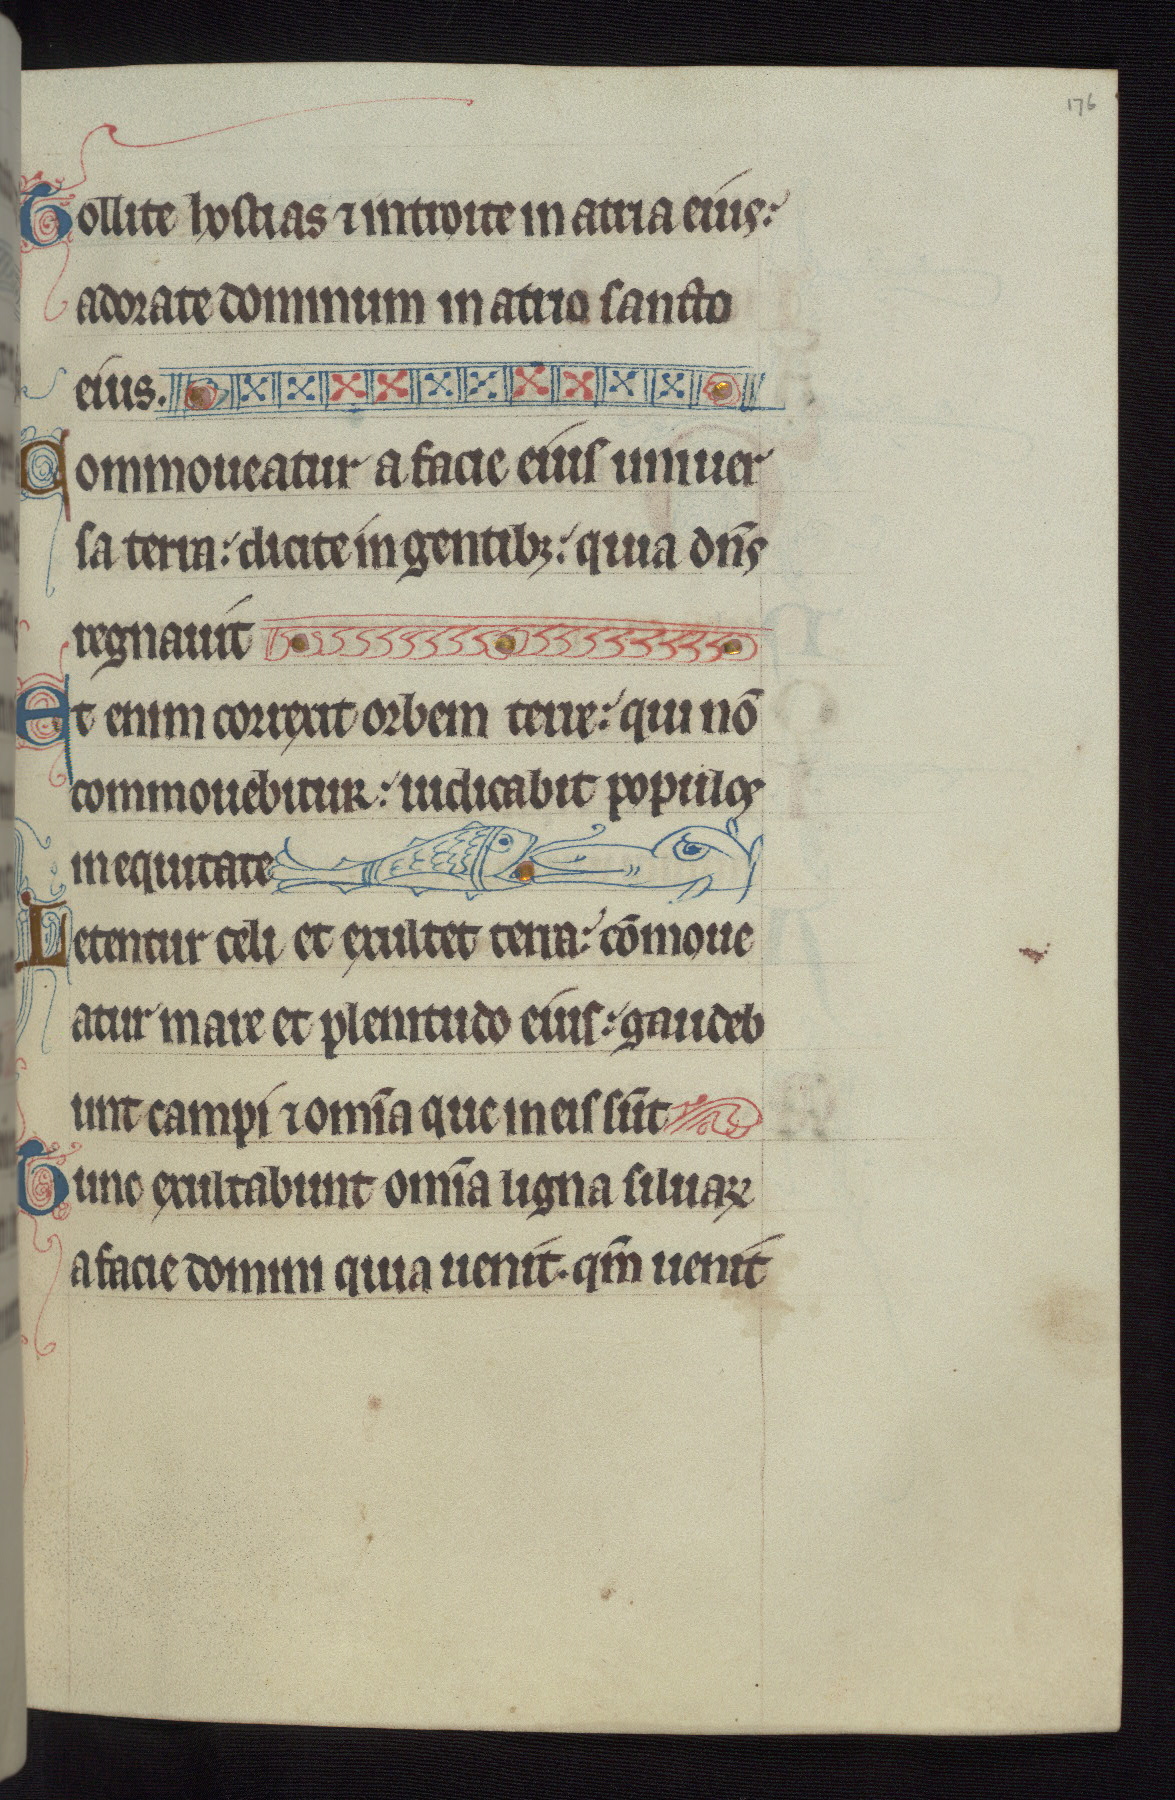 176
Tollite hostias ⁊ introite in atria eius:
adorate dominum in atrio sancto
eius.
Commoueatur a facie eius uniuer
sa terra: dicite in gentibꝫ: quia dn̄s
regnauit
Et enim correxit orbem terre: qui nō
commouebitur: iudicabit populos
in equitate
Letentur celi et exultet terra: cōmoue
atur mare et plenitudo eius: gaudeb
unt campi ⁊ om̄ia que in eis sūt
Tunc exultabunt om̄ia ligna siluaꝝ
a facie domini quia uenit. qm̄ uenit